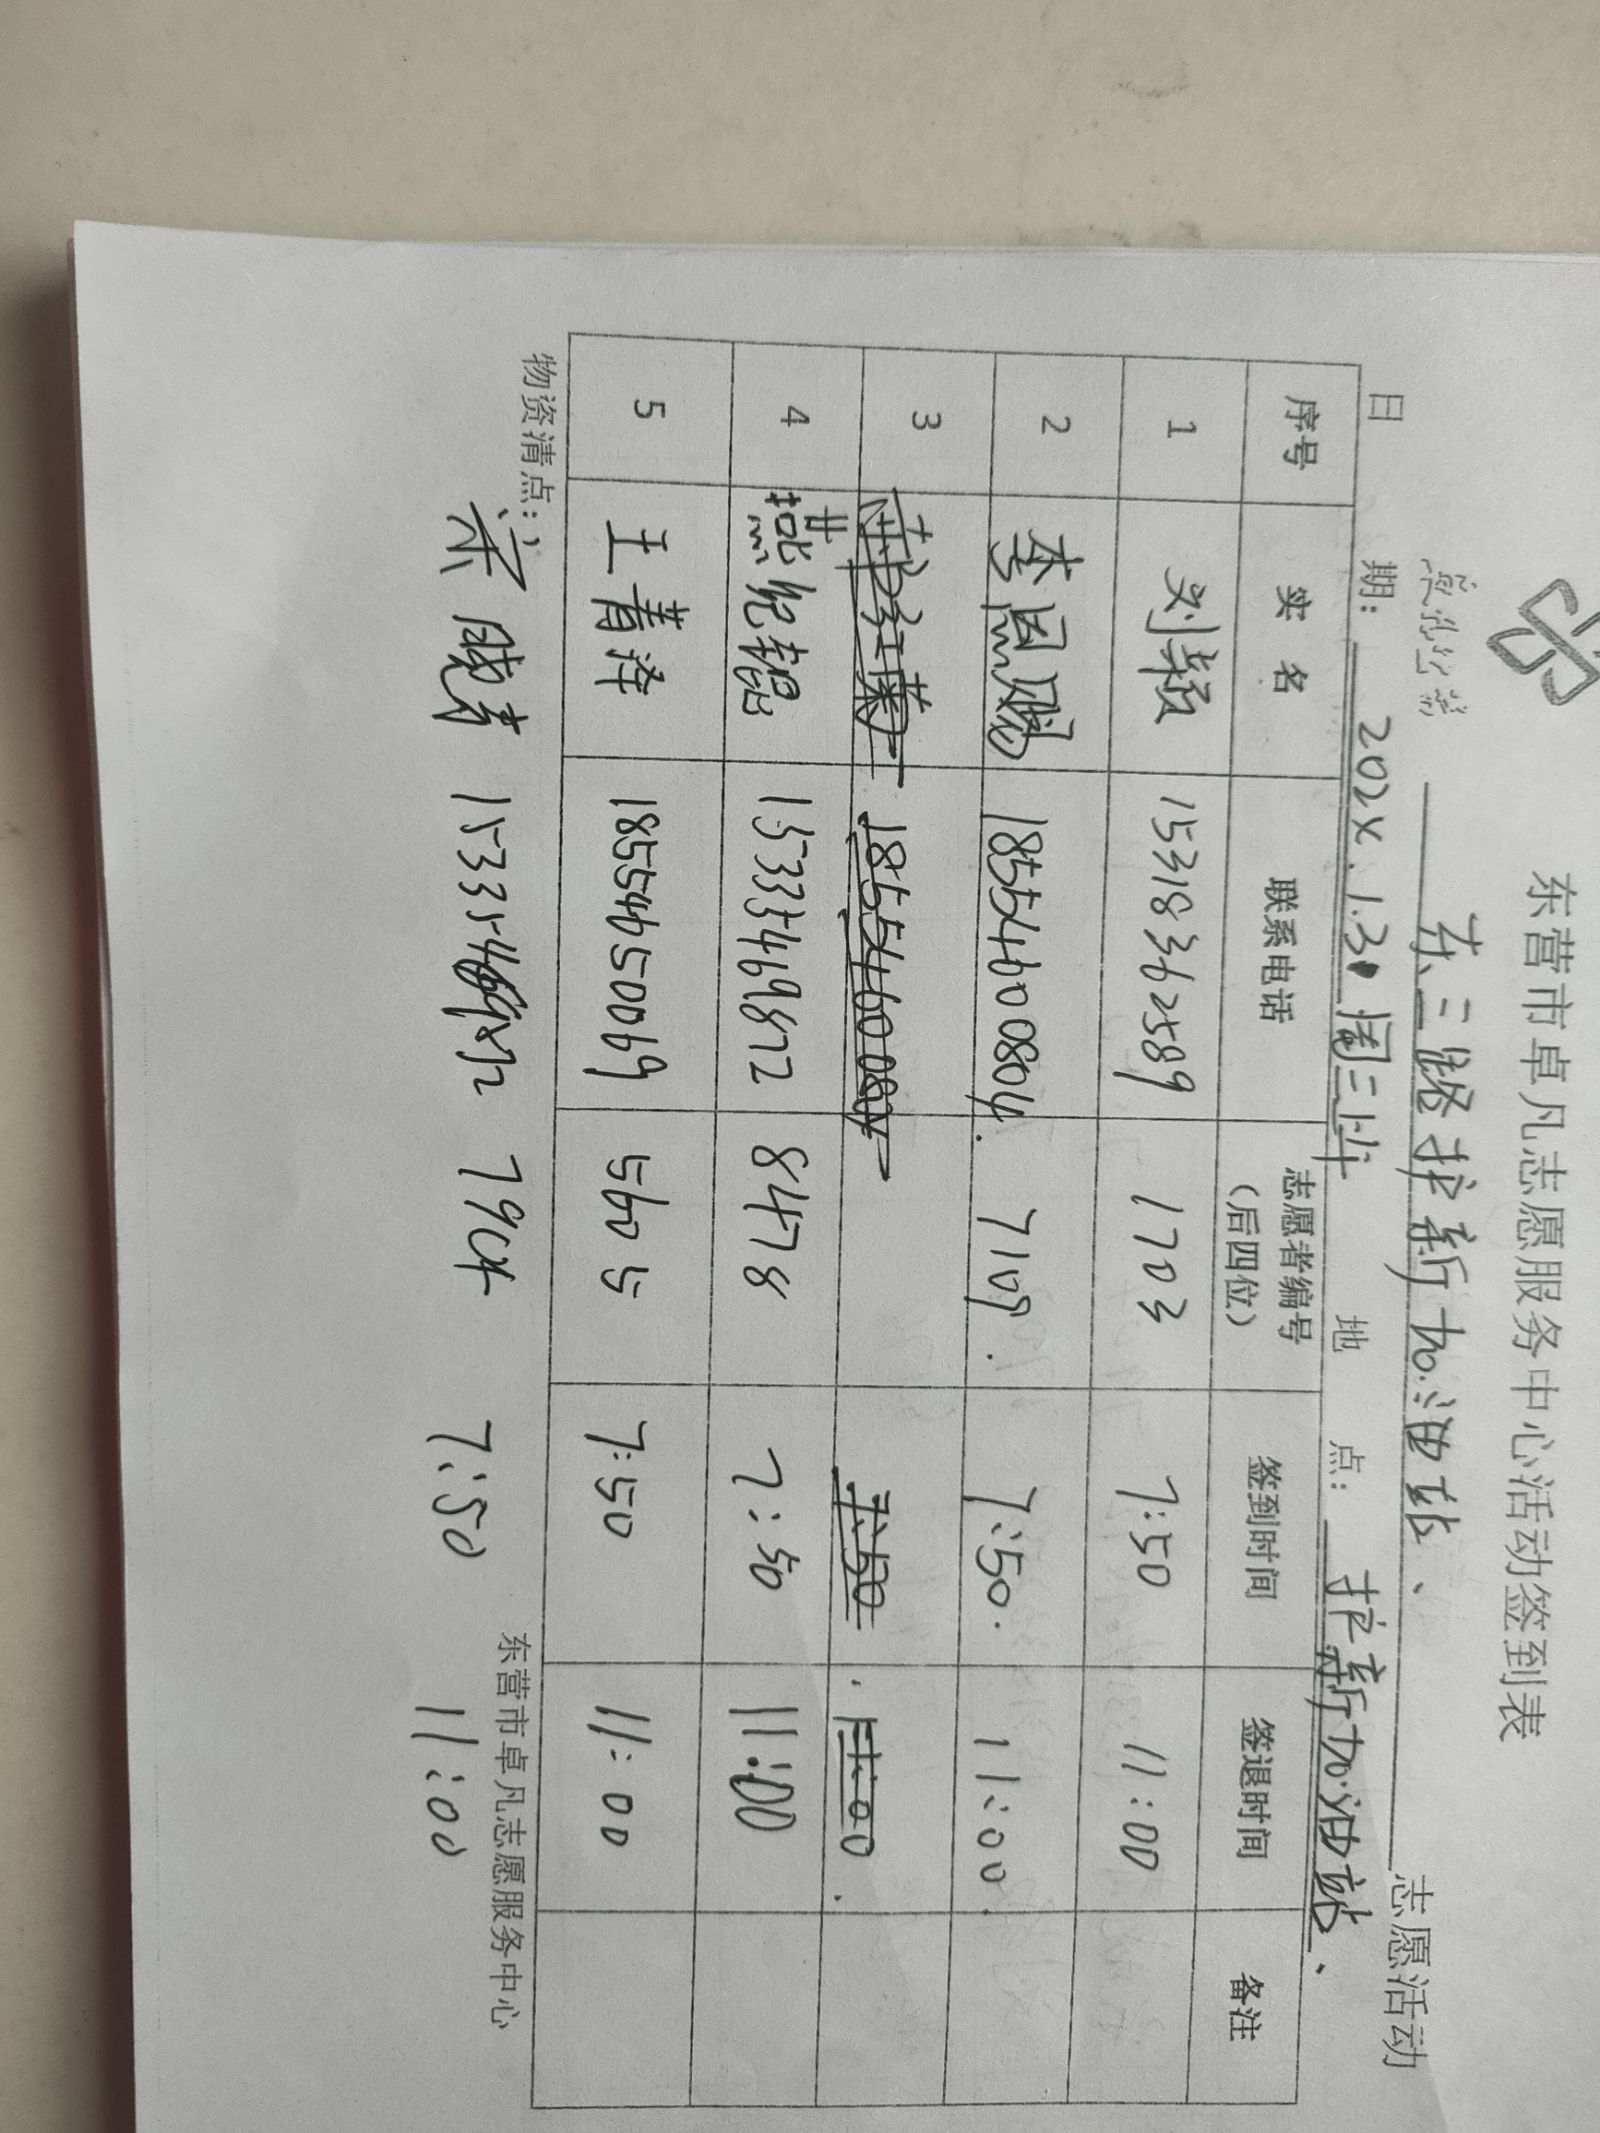 东营市卓凡志愿服务中心活动签到表
东二路护新加油站、志愿活动
日 期: 202X.1.3 周二班 地 点: 护新加油站、
序号 实 名 联系电话 志愿者编号(后四位) 签到时间 签退时间 备注
1 刘颖 15318362589 1703 7:50 11:00
2 李恩赐 18554600804. 7109. 7:50. 11:00.
3 18554600804 7:50 11:00.
4 燕纪锟 15333469872 8478 7:50 11:00
5 王菁泽 18554650069 5605 7:50 11:00
物资清点:
7904 7:50 11:00
东营市卓凡志愿服务中心